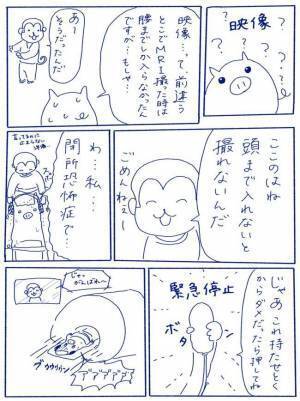 映像
?
?
?
?
?
?
映像…って、前違う
とこでMRI撮った時は
腰までしか入らなかったん
ですが…もしゃ…
あ〜
そうだったんだ
ここのはね
頭まで入れないと
撮れないんだ
ごめんねぇ〜
わ…私…
閉所恐怖症で…
じゃあこれ持たせとく
からダメだったら押してね
緊急停止
ボタン
じゃっ
がんばれ〜
ブゥゥゥゥン
ア゛ア゛ア゛ア゛ア゛